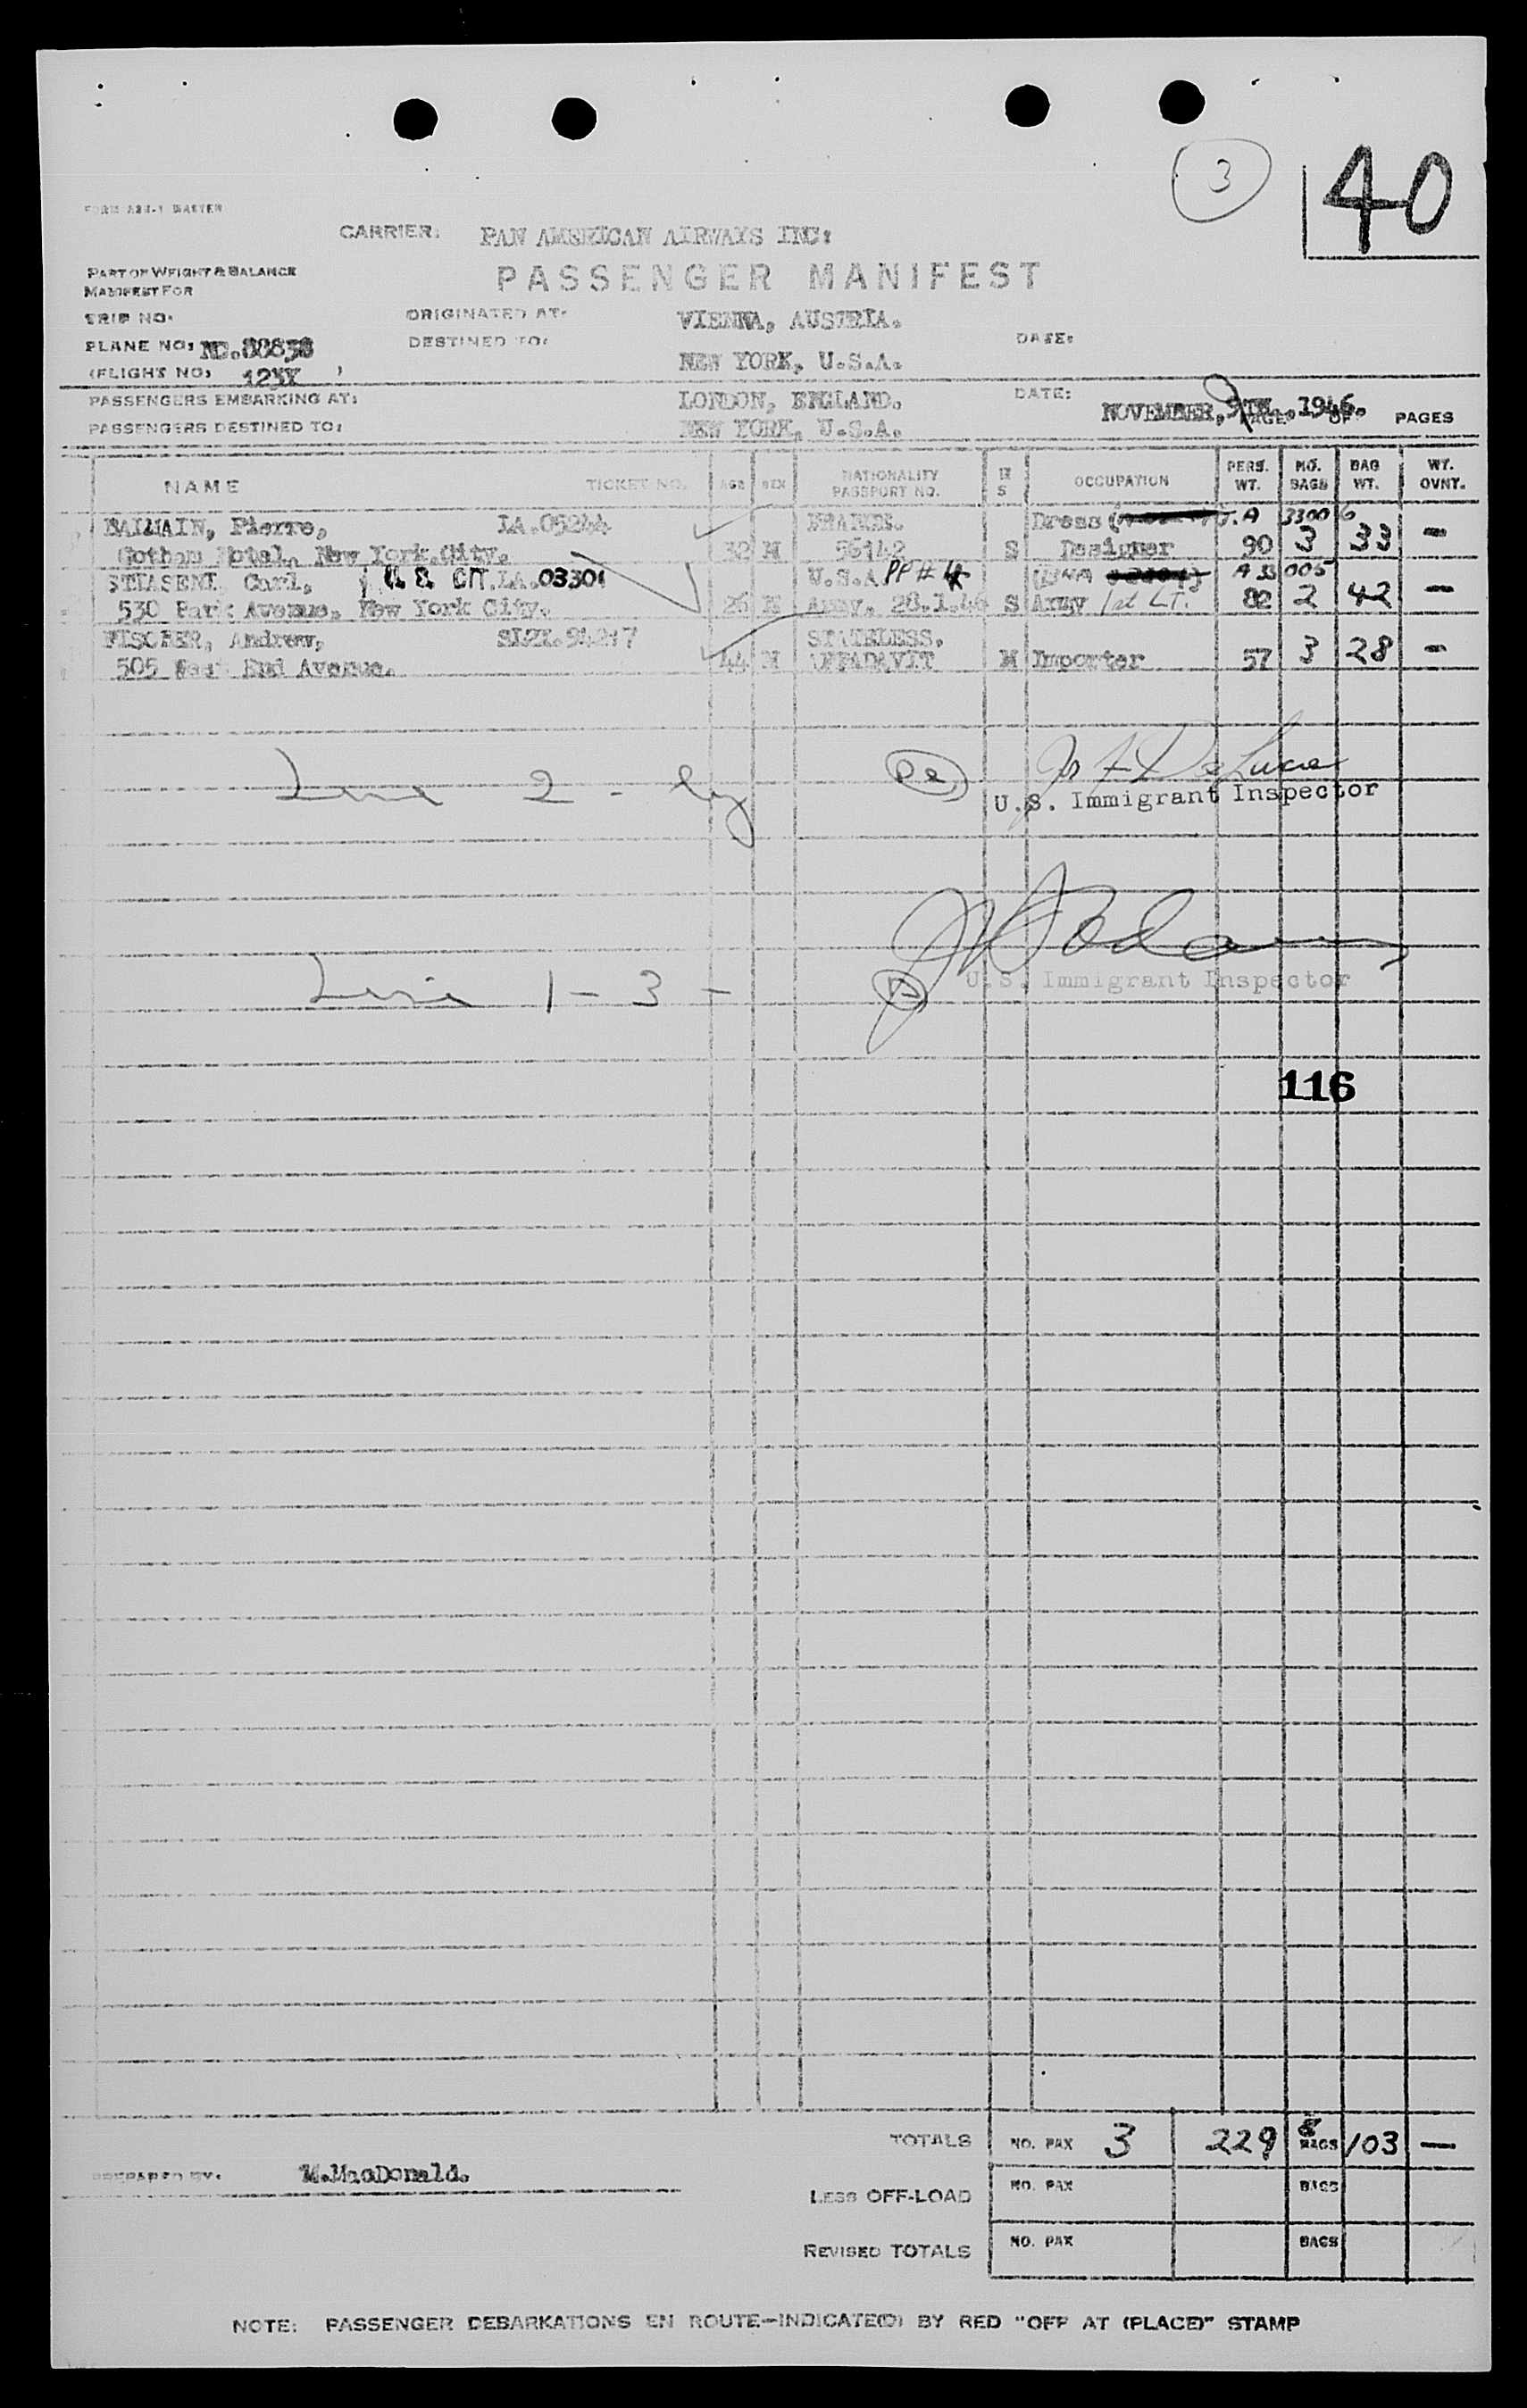 3
40
FORM
CARRIER: PAN AMERICAN AIRWAYS INC:
PART OF WEIGHT & BALANCE
MANIFEST FOR
PASSENGER MANIFEST
TRIP NO.
ORIGINATED AT: VIENNA, AUSTRIA.
PLANE NO: NC.88858
DESTINED TO: NEW YORK, U.S.A. DATE:
(FLIGHT NO: 123X )
PASSENGERS EMBARKING AT: LONDON, ENGLAND. DATE: NOVEMBER, 9TH., 1946.
PASSENGERS DESTINED TO: NEW YORK, U.S.A. PAGE OF PAGES
NAME TICKET NO. AGE SEX NATIONALITY PASSPORT NO. M S OCCUPATION PERS. WT. NO. BAGS BAG WT. WT. OVNT.
BALMAIN, Pierre, LA.05244 FRANCE. Dress A 33006
Gotham Hotel, New York City. 32 M 56142 S Designer 90 3 33 -
Carl, U S CIT. LA.03301 U.S.A. PP# A 33005
530 Park Avenue, New York City. 26 M Army, 28.1.46 S Army 1st LT. 82 2 42 -
FISCHER, Andrew, STATELESS.
505 West End Avenue. 44 M AFFADAVIT M Importer 57 3 28 -
Line 2 - by
U.S. Immigrant Inspector
Line 1 - 3 -
U.S. Immigrant Inspector
116
TOTALS NO. PAX 3 229 8 BAGS 103 —
PREPARED BY: M.MacDonald.
LESS OFF-LOAD NO. PAX BAGS
REVISED TOTALS NO. PAX BAGS
NOTE: PASSENGER DEBARKATIONS EN ROUTE—INDICATE(D) BY RED "OFF AT (PLACE)" STAMP